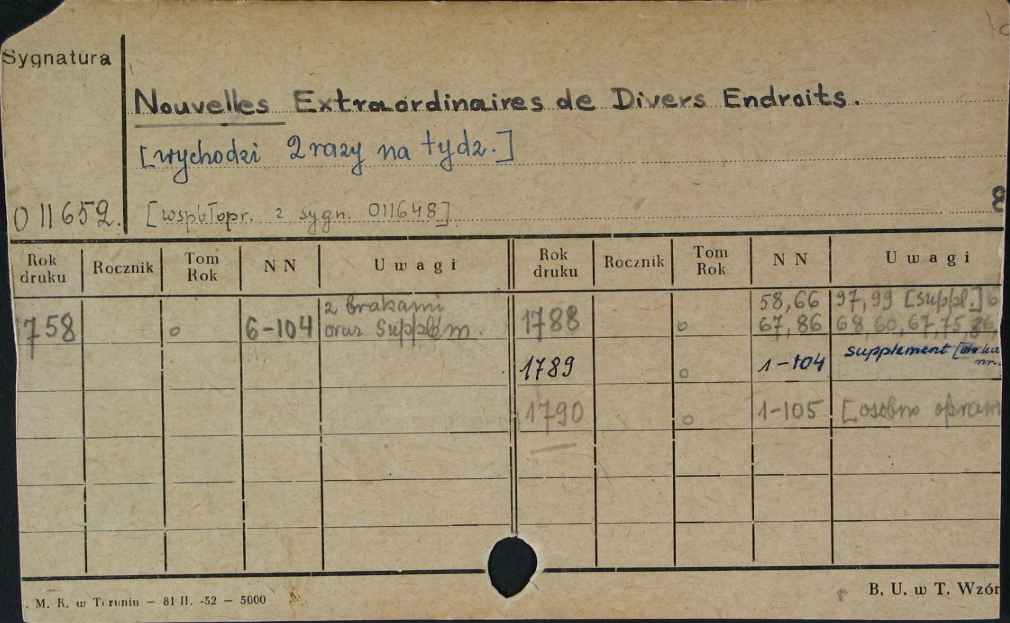 Sygnatura
Nouvelles Extraordinaires de Divers Endroits.
[wychodzi 2 razy na tydz.]
011652. [współopr. z sygn. 011648] 8
Rok druku Rocznik Tom Rok NN Uwagi Rok druku Rocznik Tom Rok NN Uwagi
1758 o 6-104 z brakami oraz supplem.
1788 o 58,66 67,86 97,99 [suppl.] 68 60,67,75,86
1789 o 1-104 supplement nr.
1790 o 1-105 [osobno opraw
M. R. w Toruniu — 81 II. -52 — 5000
B. U. w T. Wzór